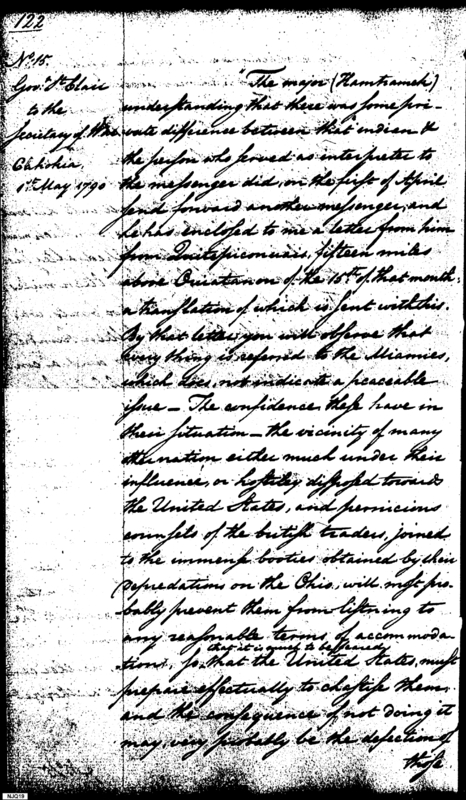 122
No. 15.
Govr. St. Clair
to the
Secretary of War
Cahokia.
1st May 1790
"The major (Hamtramck)
understanding that there was some pri-
vate difference between that indian &
the person who served as interpreter to
the messenger did, on the first of April
send forward another messenger, and
he has enclosed to me a letter from him
from Quitepiconnais, fifteen miles
above Ouiatanon of the 15th of that month,
a translation of which is sent with this.
By that letter you will observe that
every thing is referred to the Miamies,
which does not indicate a peaceable
issue — The confidence these have in
their situation — the vicinity of many
other nation either much under their
influence, or hostiley disposed towards
the United States, and pernicious
counsels of the british traders, joined
to the immense booties obtained by their
depredations on the Ohio. will most pro-
bably prevent them from listning to
any reasonable terms of accommoda-
that it is much to be feared
tion, so that the United States, must
prepare effectually to chastise them,
and the consequence of not doing it
may, very probably be the defection of
those
NJQ19